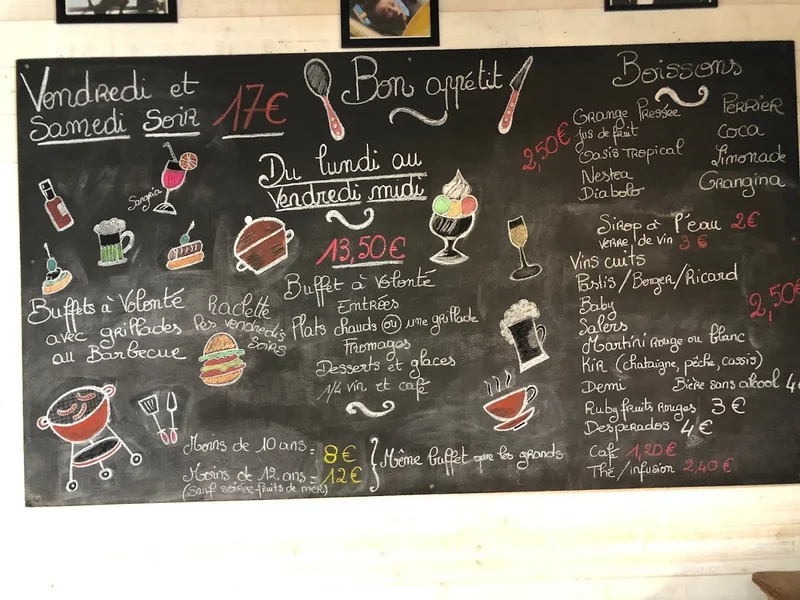 Vendredi et
Samedi Soir 17€
Sangria
Buffets à Volonté
avec grillades
au Barbecue
Raclette
les vendredis
soirs
Bon appétit
Du lundi au
Vendredi midi
13,50€
Buffet à Volonté
Entrées
Plats chauds ou une grillade
Fromages
Desserts et glaces
1/4 vin et café
Moins de 10 ans = 8€
Moins de 12 ans = 12€
(Sauf soirée fruits de mer)
Même buffet que les grands
Boissons
Orange Pressée
jus de fruit
Oasis Tropical
Nestea
Diabolo
2,50€
PERRIER
Coca
Limonade
Orangina
Sirop à l'eau 2€
Verre de vin 3€
Vins cuits
Pastis/Berger/Ricard
Baby
Salers
Martini Rouge ou blanc
Kir (chataigne, pêche, cassis)
2,50€
Demi Bière sans alcool 4€
Ruby fruits rouges 3€
Desperados 4€
Café 1,20€
Thé/infusion 2,40€